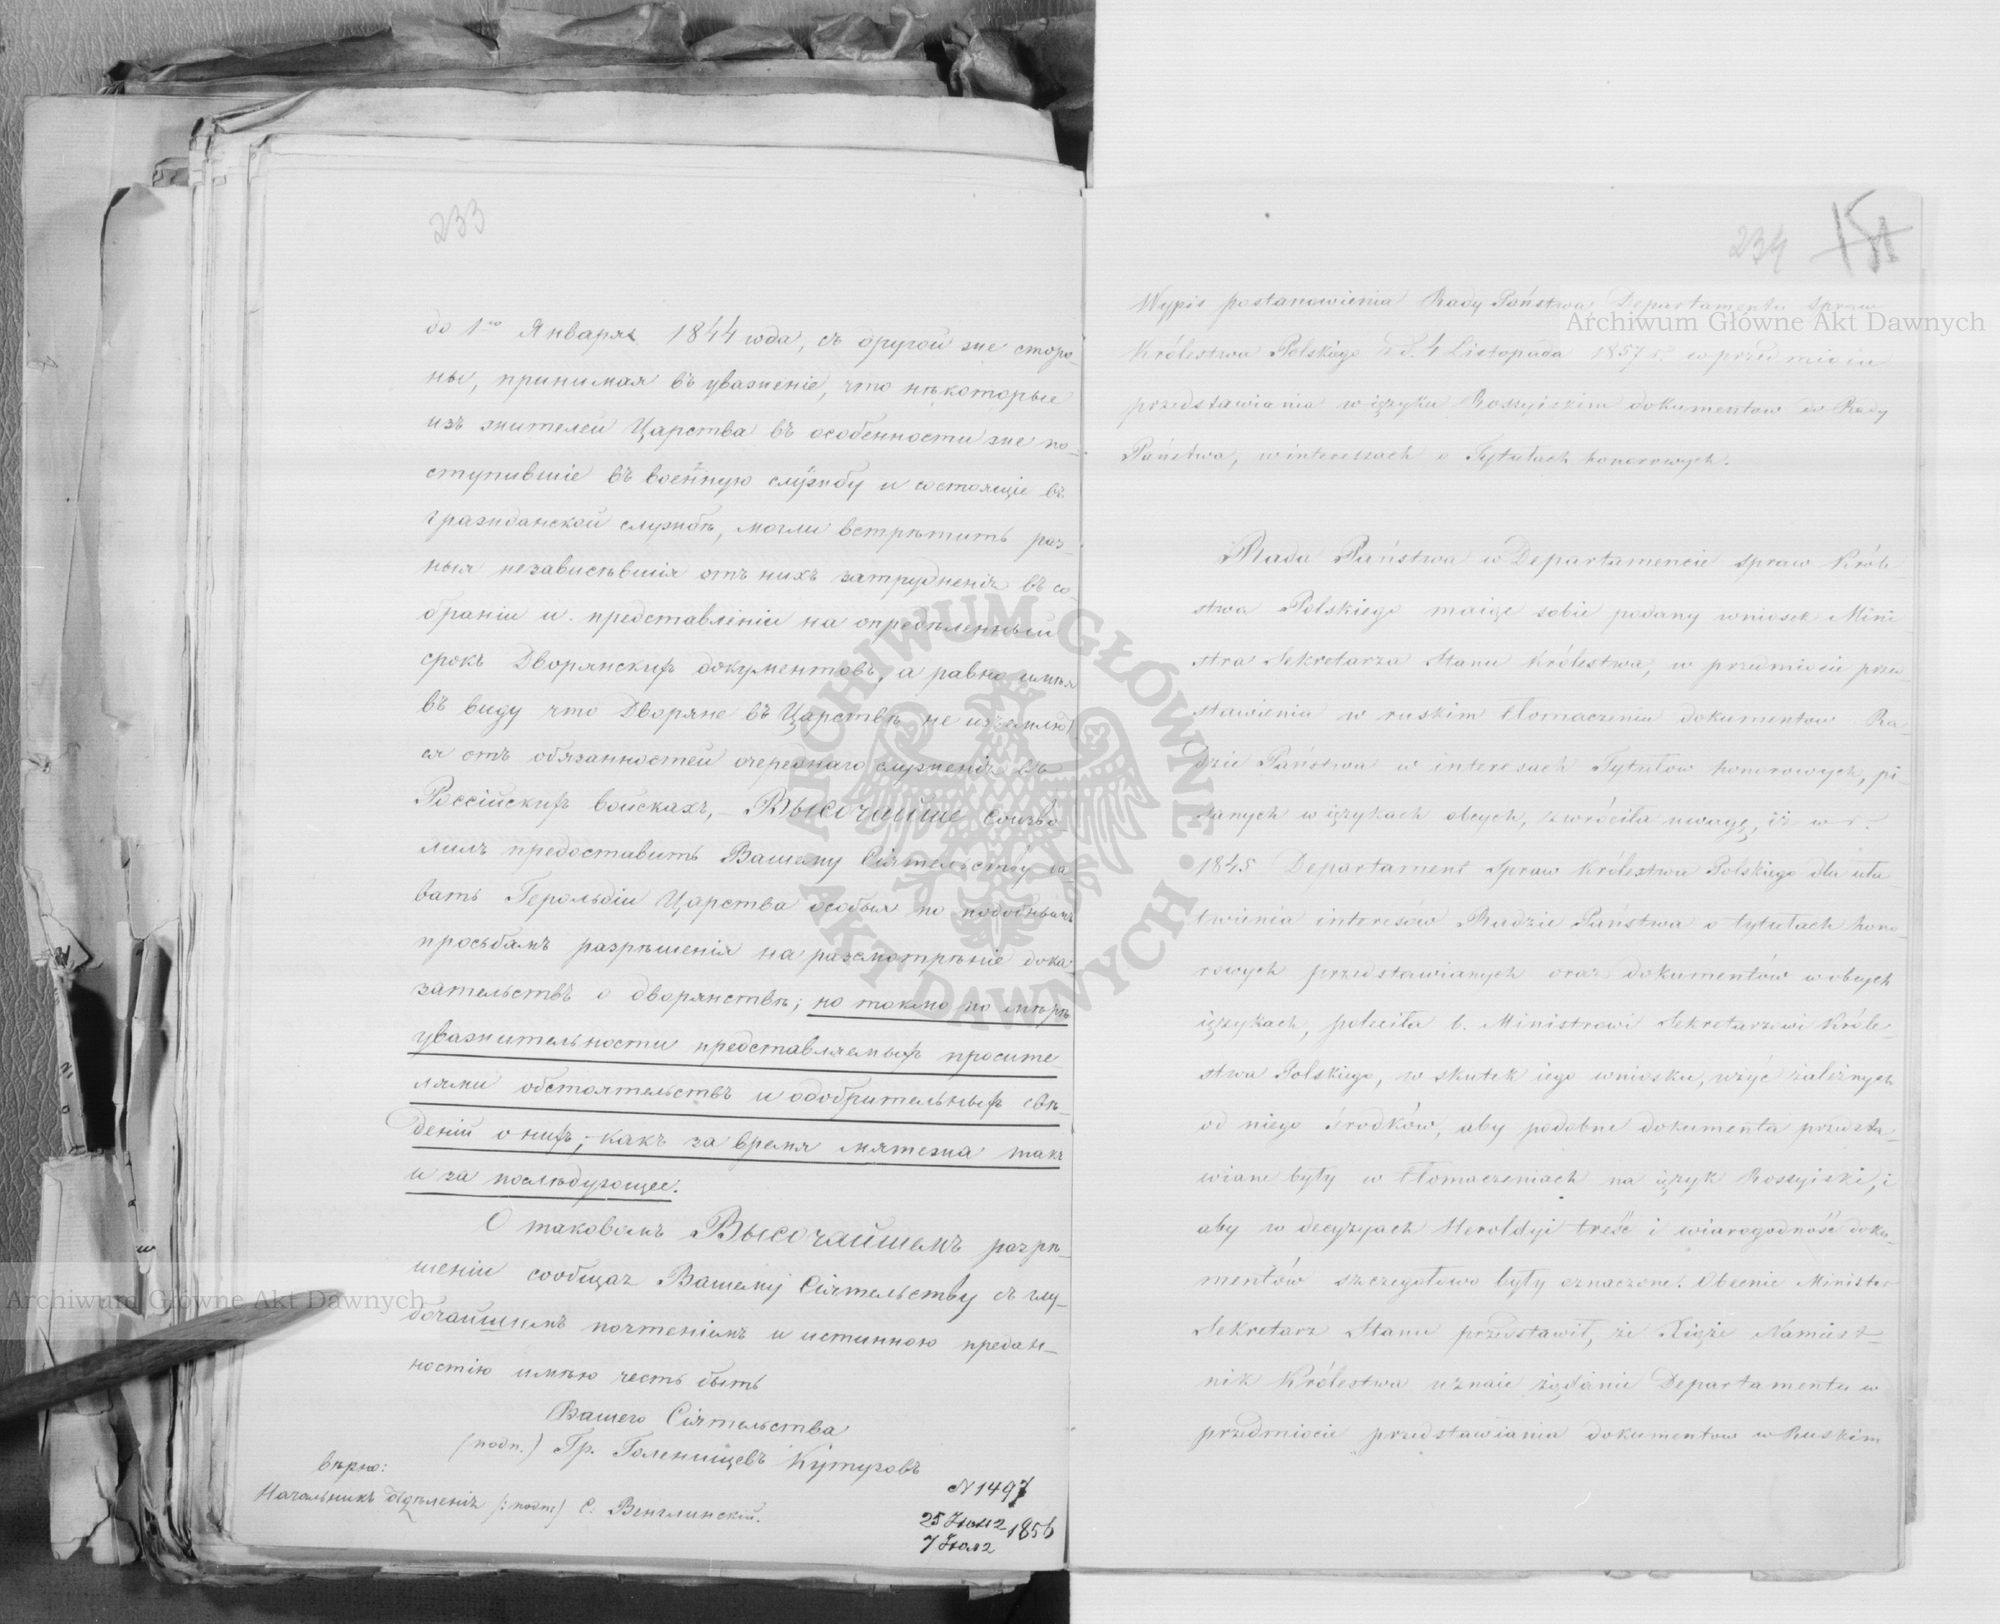 233
до 1го Января 1844 года, съ другой же сторо-
ны, принимая въ уваженіе, что нѣкоторые
изъ жителей Царства въ особенности же по-
ступившіе въ военную службу и состоящіе въ
гражданской службѣ, могли встрѣтить раз-
ныя независѣвшія отъ нихъ затрудненія въ со-
браніи и представленіи на опредѣленный
срокъ Дворянскихъ документовъ, а равно имѣя
въ виду что Дворяне въ Царствѣ не изъемлют
ся отъ обязанностей очереднаго служенія въ
Россійскихъ войскахъ, – Высочайше соизво-
лилъ предоставить Вашему Сіятельству да
вать Герольдіи Царства особыя по подобнымъ
просьбамъ разрѣшенія на разсмотрѣніе дока-
зательствъ о дворянствѣ; но токмо по мѣрѣ
уважительности представляемыхъ просите-
лями обстоятельствъ и одобрительныхъ свѣ-
деній о нихъ, какъ за время мятежа такъ
и за послѣдующее.
О таковомъ Высочайшемъ разрѣ-
шеніи сообщая Вашему Сіятельству съ глу-
бочайшимъ почтеніемъ и истинною предан-
ностію имѣю честь быть
Вашего Сіятельства
(подп.) Гр. Голенищевъ Кутузовъ
вѣрно:
Начальникъ Отдѣленія (:подп:) С. Венглинскій.
N 1497
25 Іюня 1856
7 Іюля
234
Wypis postanowienia Rady Państwa Departamentu Spraw
Królestwa Polskiego z d. 4 Listopada 1857 r. w przedmiocie
przedstawiania w ięzyku Rossyiskim dokumentow do Rady
Państwa, w interessach o Tytułach honorowych.
Rada Państwa w Departamencie Spraw Króle-
stwa Polskiego maiąc sobie podany wniosek Mini-
stra Sekretarza Stanu Królestwa, w przedmiocie przed-
stawienia w ruskim tłomaczeniu dokumentow Ra-
dzie Państwa w interesach Tytułow honorowych, pi-
sanych w ięzykach obcych, zwróciła uwagę, iż w r.
1845 Departament Spraw Królestwa Polskiego dla uła-
twienia interesów Radzie Panstwa o tytułach hono-
rowych przedstawianych oraz dokumentów w obcych
ięzykach, poleciła b. Ministrowi Sekretarzowi Króle-
stwa Polskiego, w skutek iego wniosku, użyć zależnych
od niego środków, aby podobne dokumenta przedsta-
wiane były w tłomaczeniach na ięzyk Rossyiski, i
aby w decyzyach Heroldyi treść i wiarogodność doku-
mentów szczegółowo były oznaczone. Obecnie Minister
Sekretarz Stanu przedstawił, że Xiąże Namiest-
nik Królestwa uznaie żądanie Departamentu w
przedmiocie przedstawiania dokumentow w Ruskim
Archiwum Główne Akt Dawnych
Archiwum Główne Akt Dawnych
ARCHIWUM GŁÓWNE AKT DAWNYCH